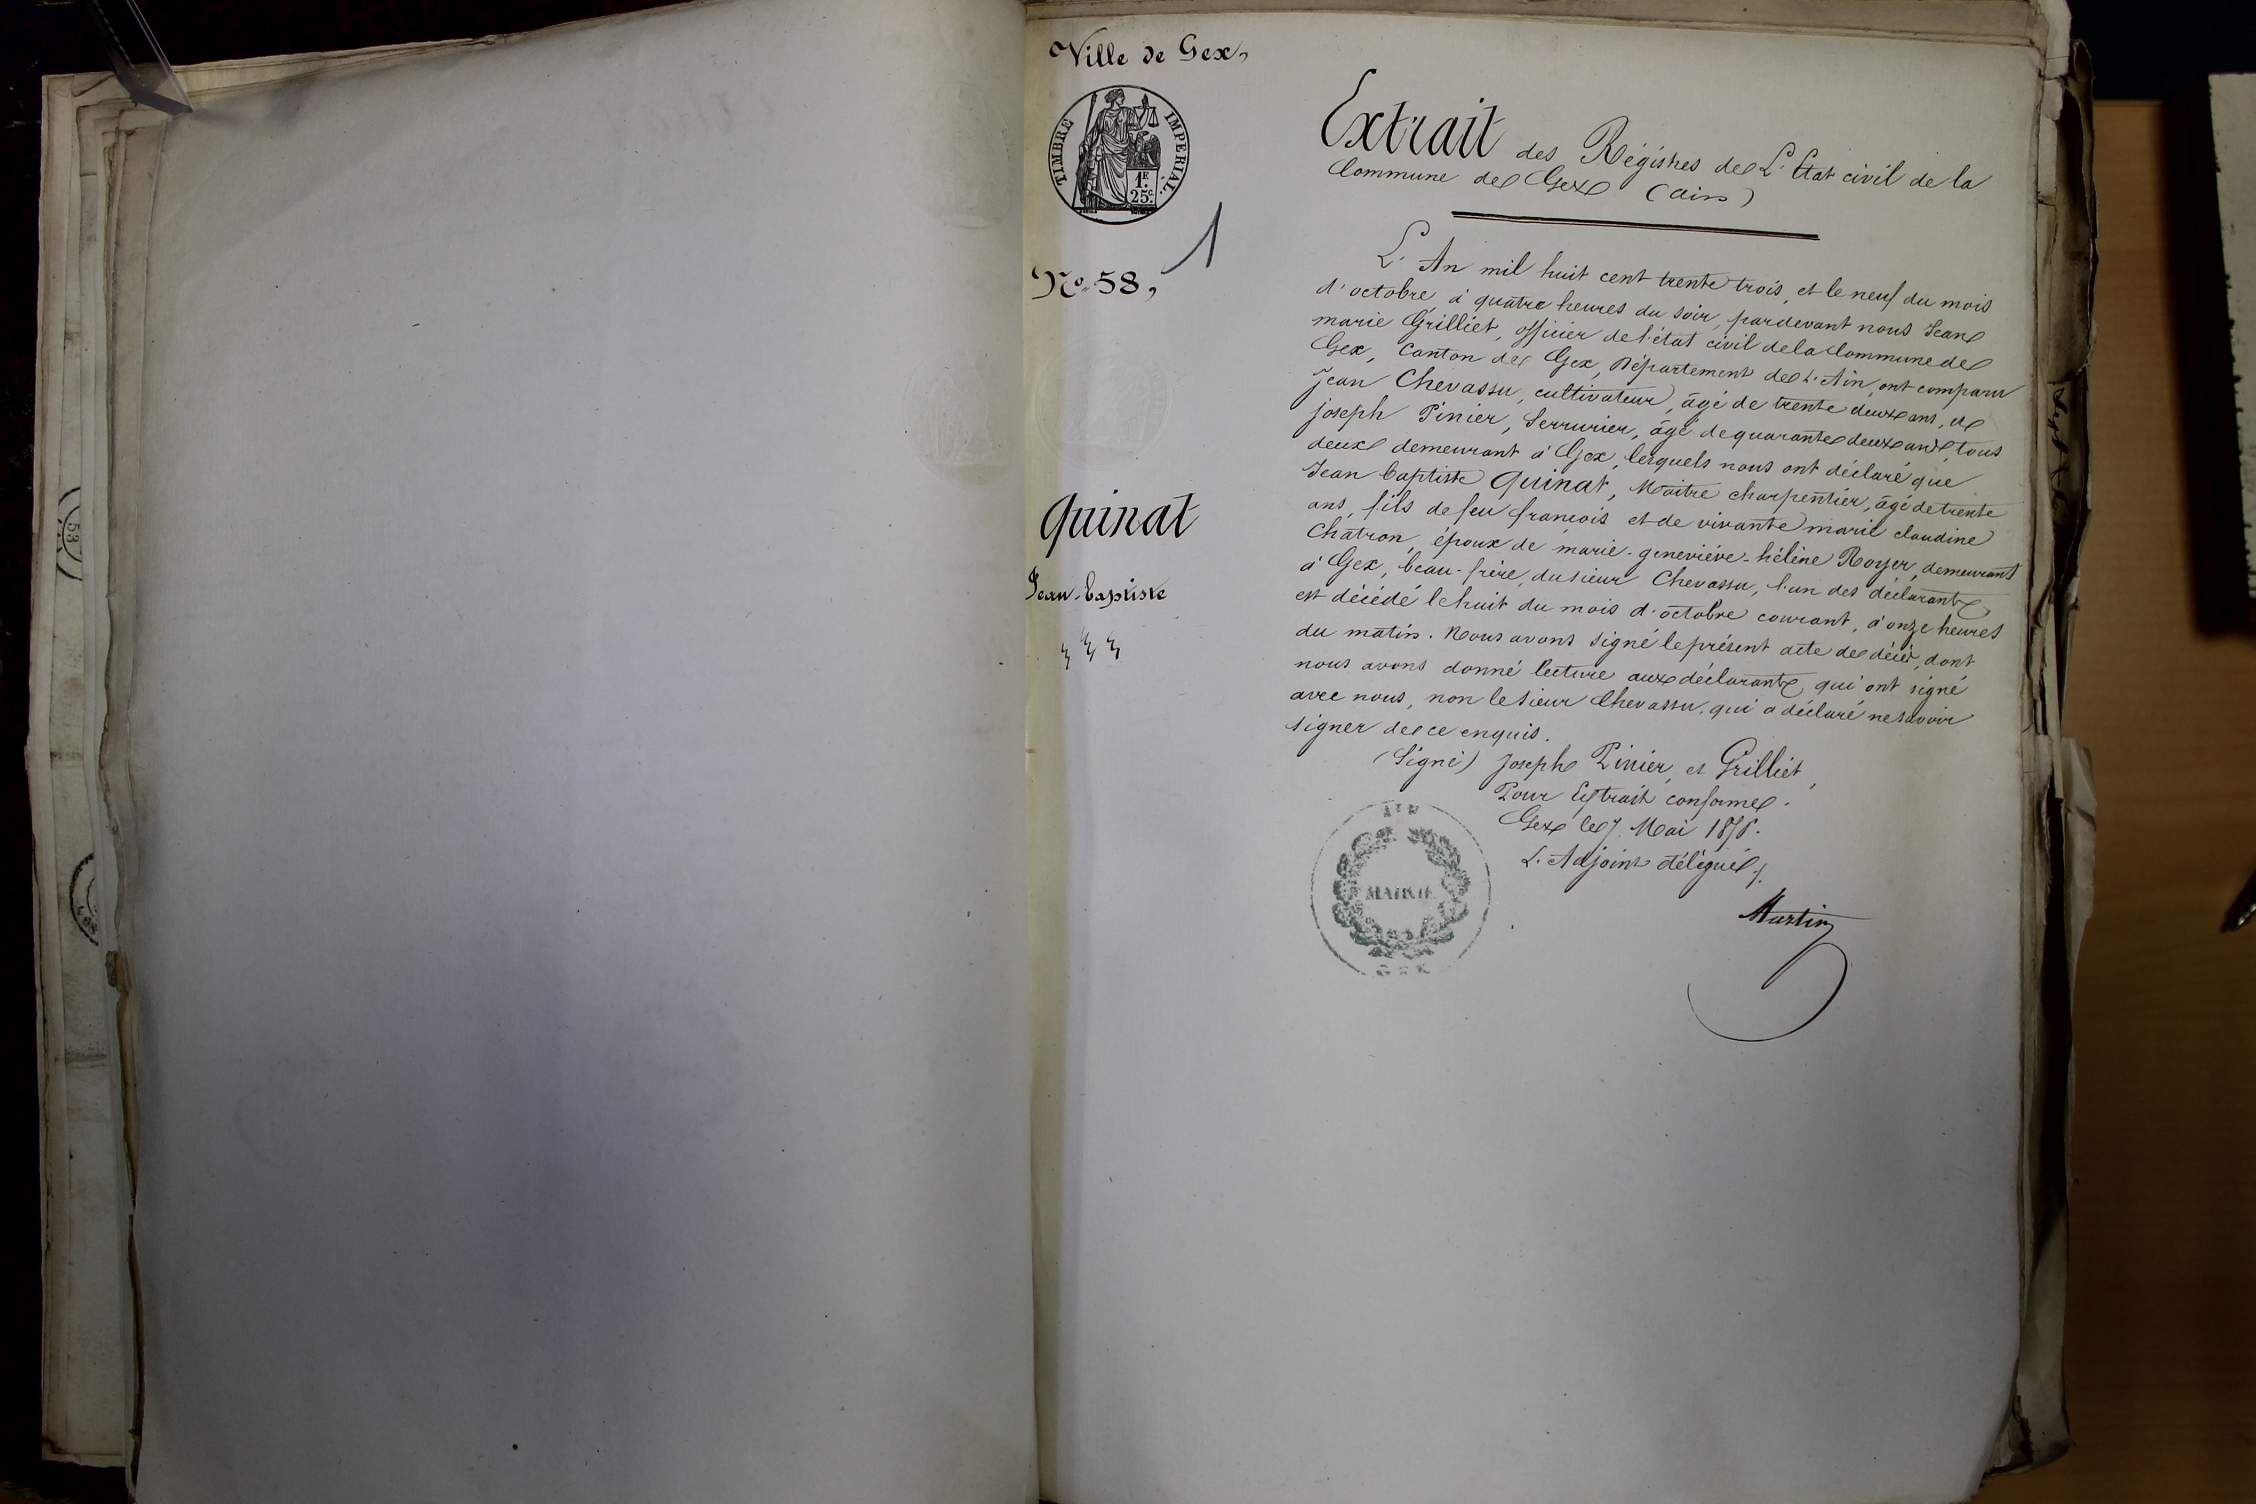 Ville de Gex,
TIMBRE IMPERIAL.
1F.
25c.
1
No. 58,
Quinat
Jean-Baptiste
Extrait des Régistres de L'Etat civil de la
Commune de Gex (ain)
L'An mil huit cent trente trois, et le neuf du mois
d'octobre à quatre heures du soir, pardevant nous Jean
marie Grilliet, officier de l'état civil de la Commune de
Gex, Canton de Gex, Département de L'Ain, ont comparu
Jean Chevassu, cultivateur, âgé de trente deux ans, et
joseph Pinier, Serrurier, âgé de quarante deux ans, tous
deux demeurant à Gex, lesquels nous ont déclaré que
Jean Baptiste Quinat, Maitre charpentier, âgé de trente
ans, fils de feu francois et de vivante marie claudine
Chatron, époux de marie-geneviève-hélène Royer, demeurant
à Gex, beau-frère, du sieur Chevassu, l'un des déclarants,
est décédé le huit du mois d'octobre courant, à onze heures
du matin. Nous avons signé le présent acte de décès, dont
nous avons donné lecture aux déclarants, qui ont signé
avec nous, non le sieur Chevassu, qui a déclaré ne savoir
signer de ce enquis.
(Signé) Joseph Pinier, et Grilliet,
Pour Extrait conforme.
Gex le 7 Mai
L'Adjoint délégué,
Martin
MAIRIE
GEX
AIN
53